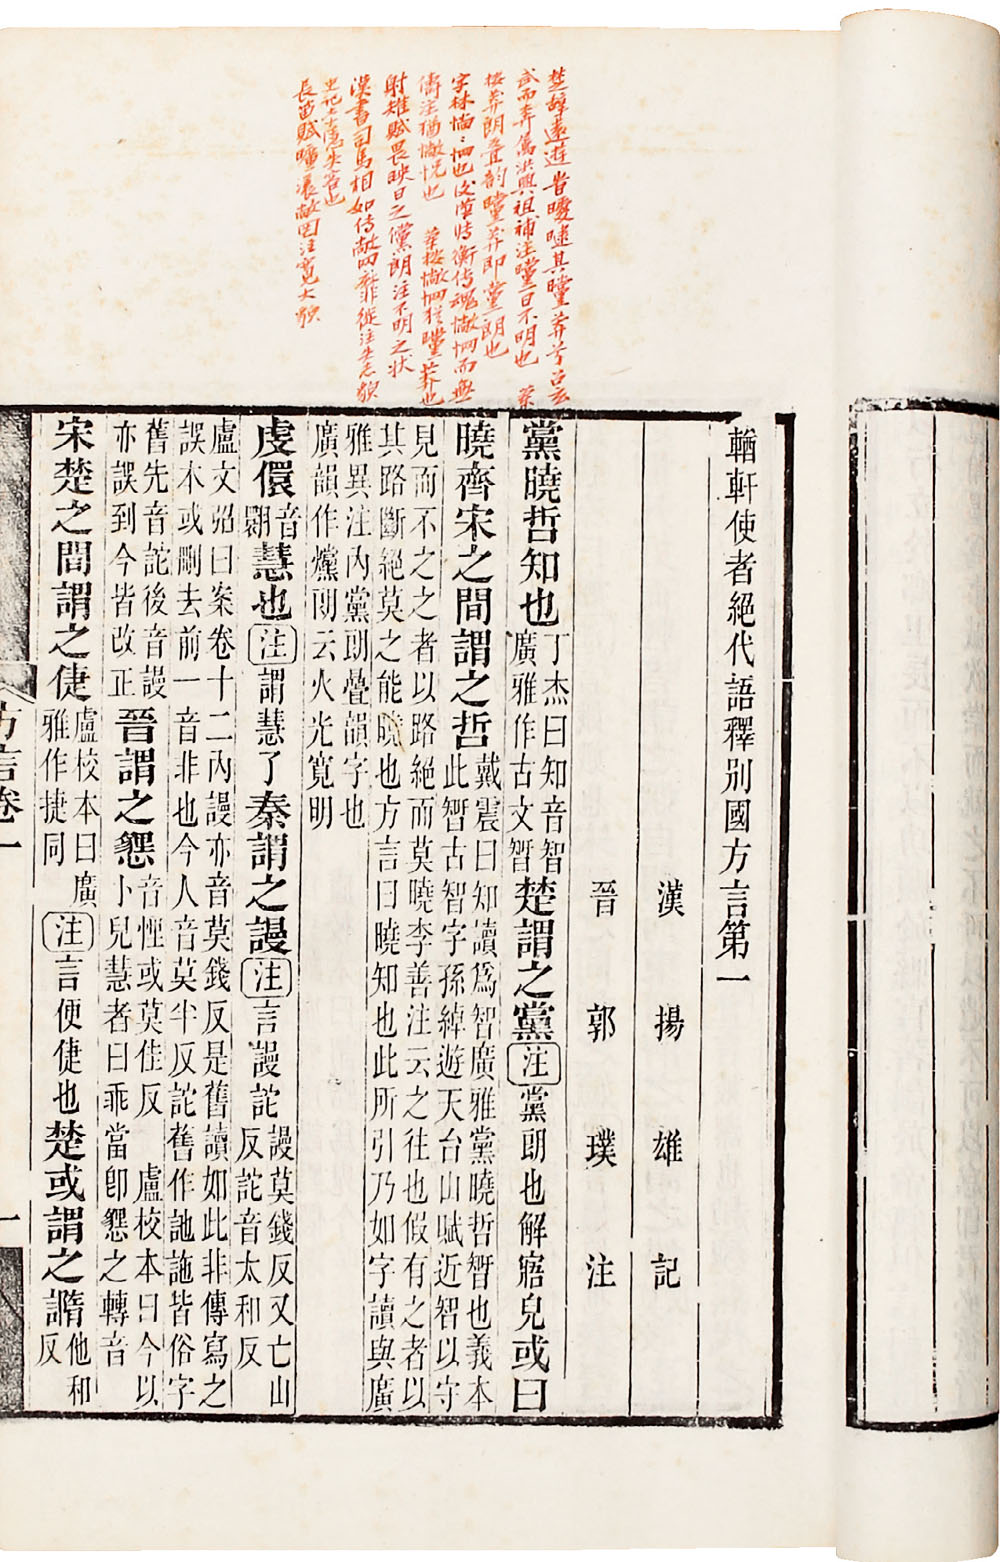 楚辭遠遊昔曖曃其曭莽兮召玄
武而奔屬洪興祖補注曭日不明也
按莽朗疊韵曭莽即黨朗也
字林惝惘也後漢張衡傳魂惝惘而無
儔注猶惝怳也 按惝惘猶曭莽也
射雉賦畏映日之儻朗注不明之狀
漢書司馬相如傳敞罔靡徙注失志貌
史記正義失容也
長笛賦曠瀁敞罔注寬大貌
輶軒使者絕代語釋別國方言第一
漢 揚 雄 記
晉 郭 璞 注
黨曉哲知也丁杰曰知音智廣雅作古文𣉻楚謂之黨注黨朗也解寤皃或曰
曉齊宋之間謂之哲戴震曰知讀爲智廣雅黨曉哲𣉻也義本此𣉻古智字孫綽遊天台山賦近智以守
見而不之之者以路絕而莫曉李善注云之往也假有之者以
其路斷絕莫之能曉也方言曰曉知也此所引乃如字讀與廣
雅異注內黨朗疊韻字也
廣韻作爣朗云火光寬明
虔儇音翾慧也注謂慧了秦謂之謾注言謾詑謾莫錢反又亡山反詑音太和反
盧文弨曰案卷十二內謾亦音莫錢反是舊讀如此非傳寫之
誤本或刪去前一音非也今人音莫半反詑舊作訑訑皆俗字
舊先音詑後音謾亦誤到今皆改正晉謂之㦟音悝或莫佳反 盧校本曰今以小兒慧者曰乖當卽㦟之轉音
宋楚之間謂之倢盧校本曰廣雅作捷同注言便倢也楚或謂之䜏他和反
方言卷一
一